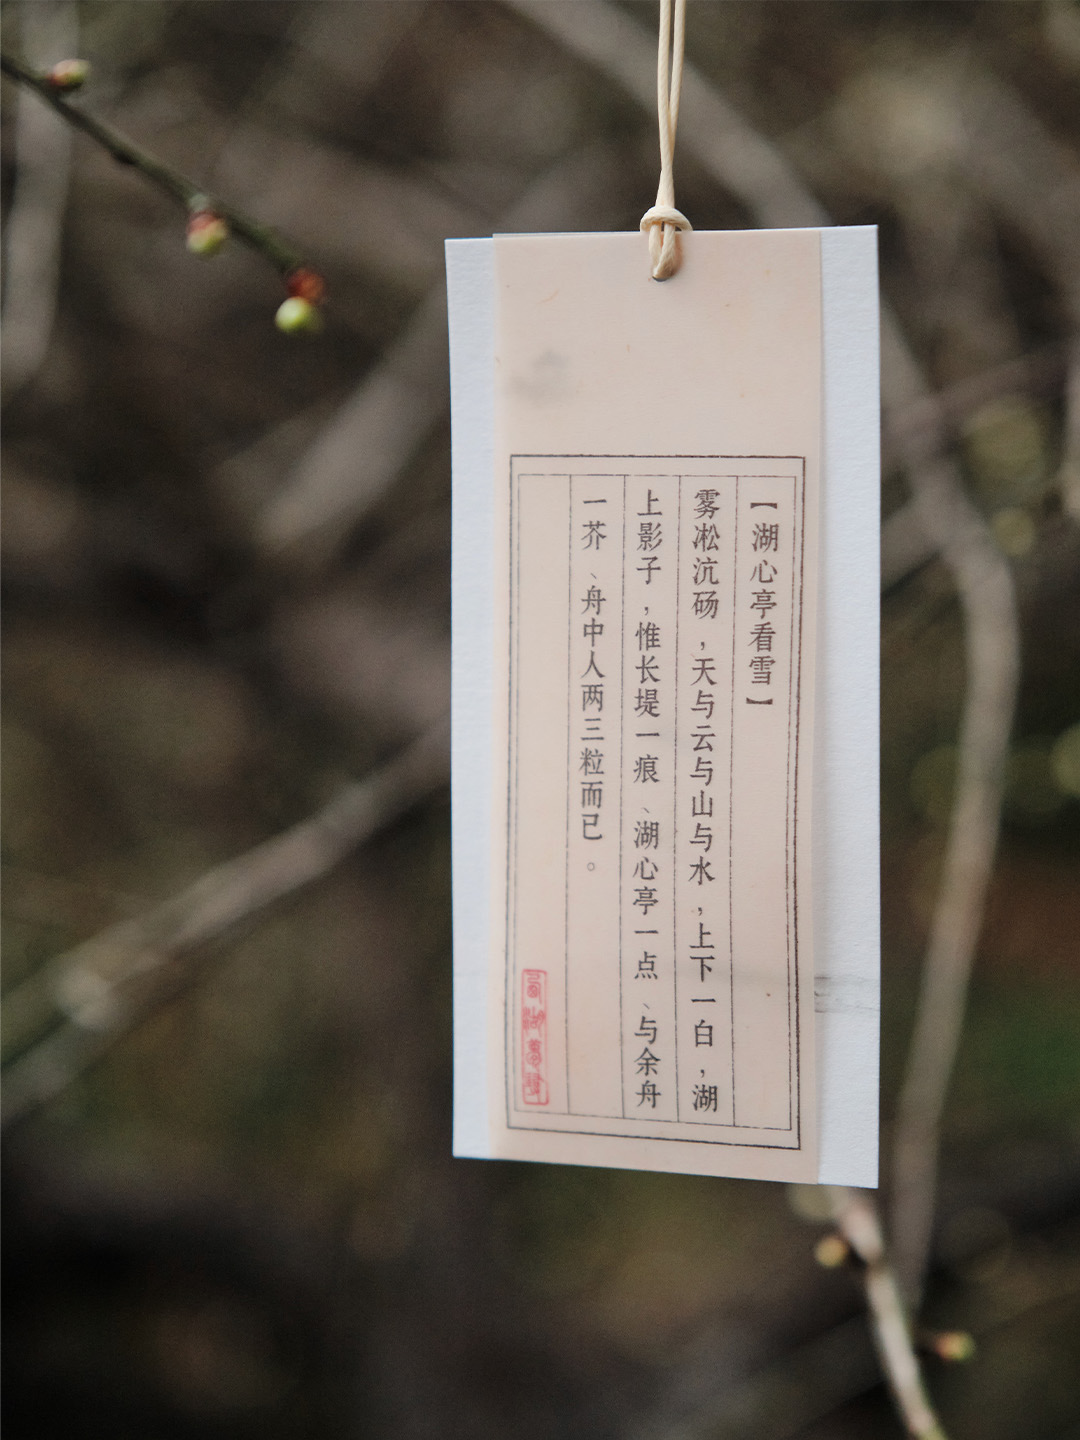 【湖心亭看雪】
雾凇沆砀，天与云与山与水，上下一白，湖
上影子，惟长堤一痕、湖心亭一点、与余舟
一芥、舟中人两三粒而已。